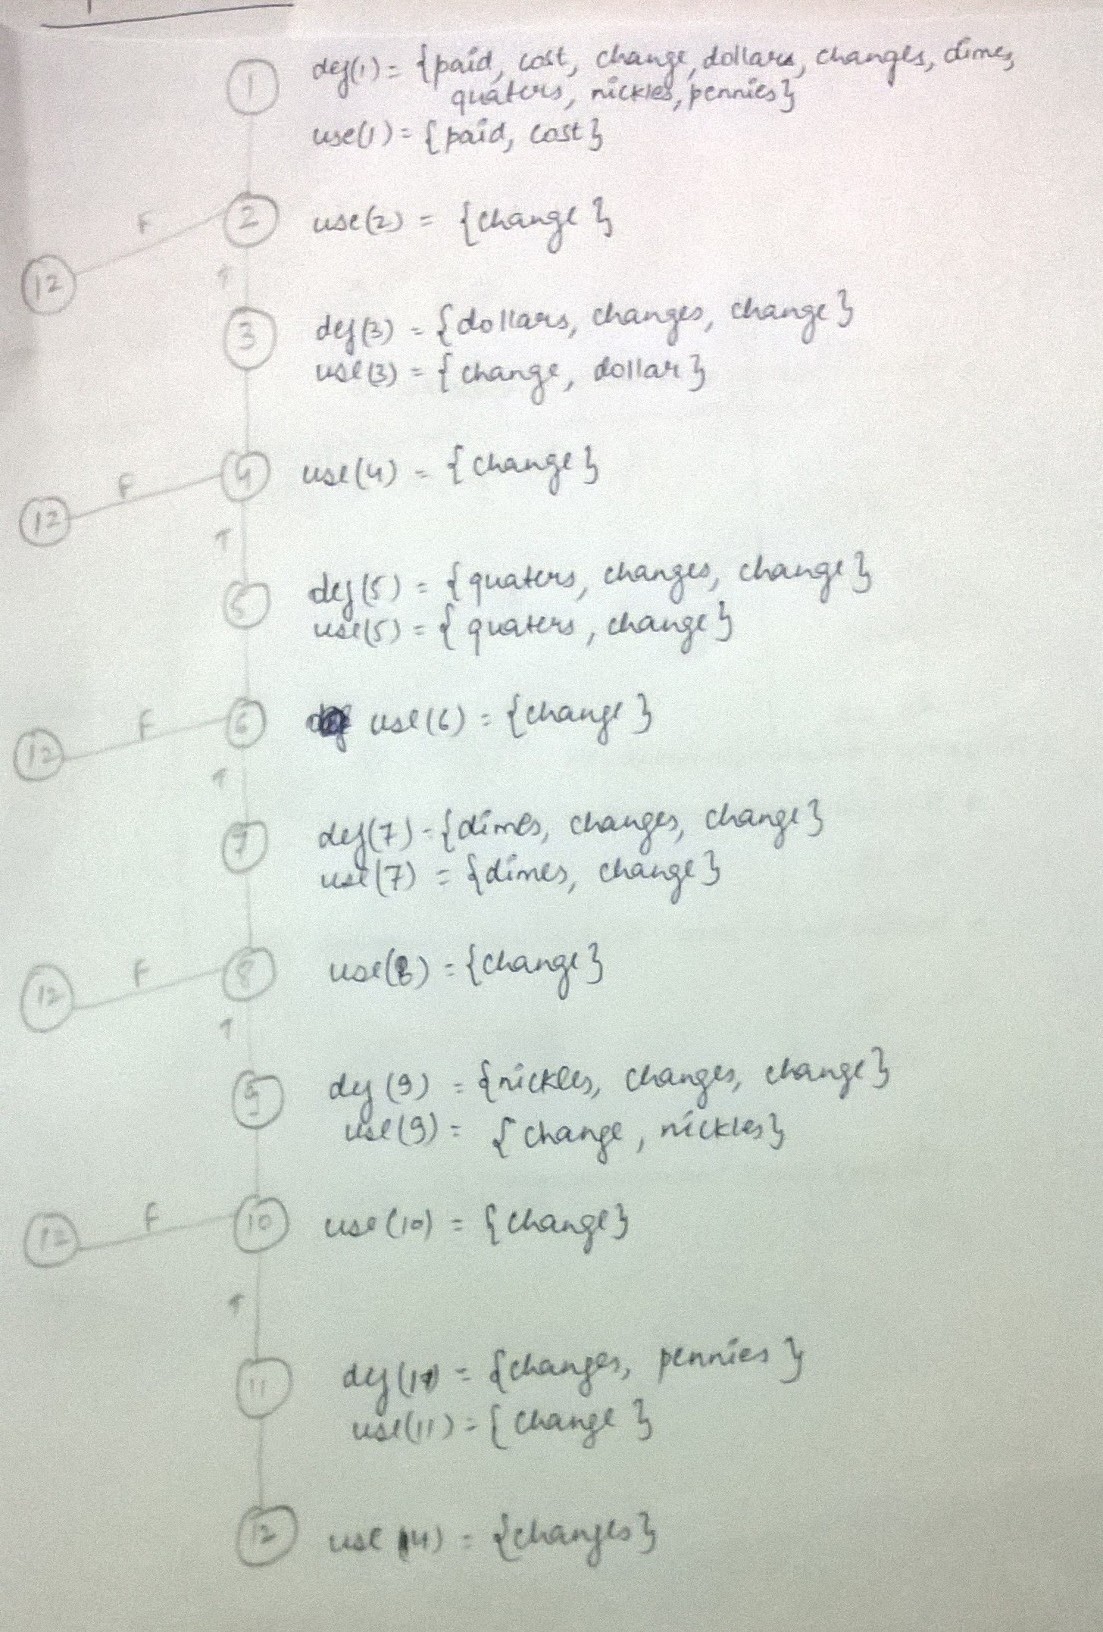 1 def(1) = {paid, cost, change, dollars, changes, dimes,
quaters, nickles, pennies}
use(1) = {paid, cost}
F 2 use(2) = {change}
12
3 def(3) = {dollars, changes, change}
use(3) = {change, dollar}
F 4 use(4) = {change}
12
5 def(5) = {quaters, changes, change}
use(5) = {quaters, change}
F 6 use(6) = {change}
12
7 def(7) = {dimes, changes, change}
use(7) = {dimes, change}
F 8 use(8) = {change}
12
9 def(9) = {nickles, changes, change}
use(9) = {change, nickles}
F 10 use(10) = {change}
12
11 def(11) = {changes, pennies}
use(11) = {change}
12 use(14) = {changes}